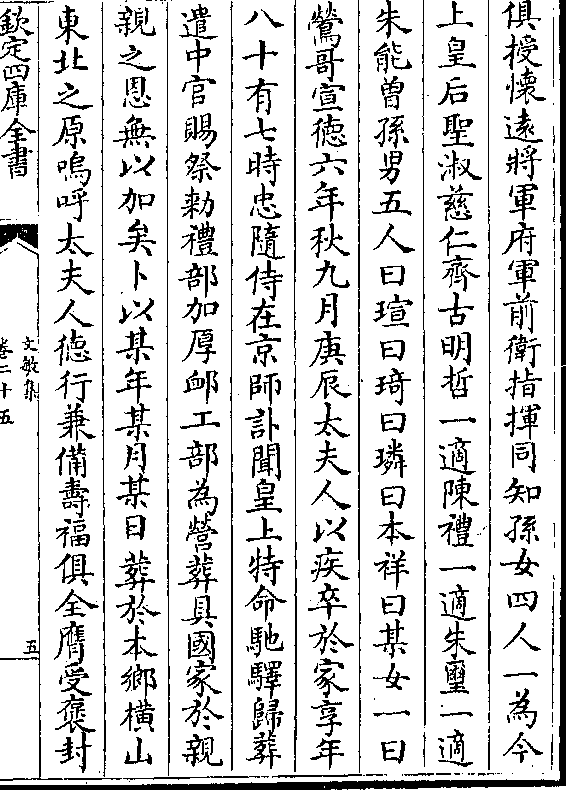 俱授懷逺將軍府軍前衛指揮同知孫女四人一為今
上皇后聖淑慈仁齊古明哲一適陳禮一適朱璽一適
朱能曽孫男五人曰瑄曰琦曰璘曰本祥曰某女一曰
鶯哥宣徳六年秋九月庚辰太夫人以疾卒於家享年
八十有七時忠隨侍在京師訃聞皇上特命馳驛歸葬
遣中官賜祭勑禮部加厚䘏工部為營葬具國家於親
親之恩無以加矣卜以某年某月某日葬於本鄉横山
東北之原嗚呼太夫人徳行兼備壽福俱全膺受褒封
欽定四庫全書
文敏集
卷二十五
五